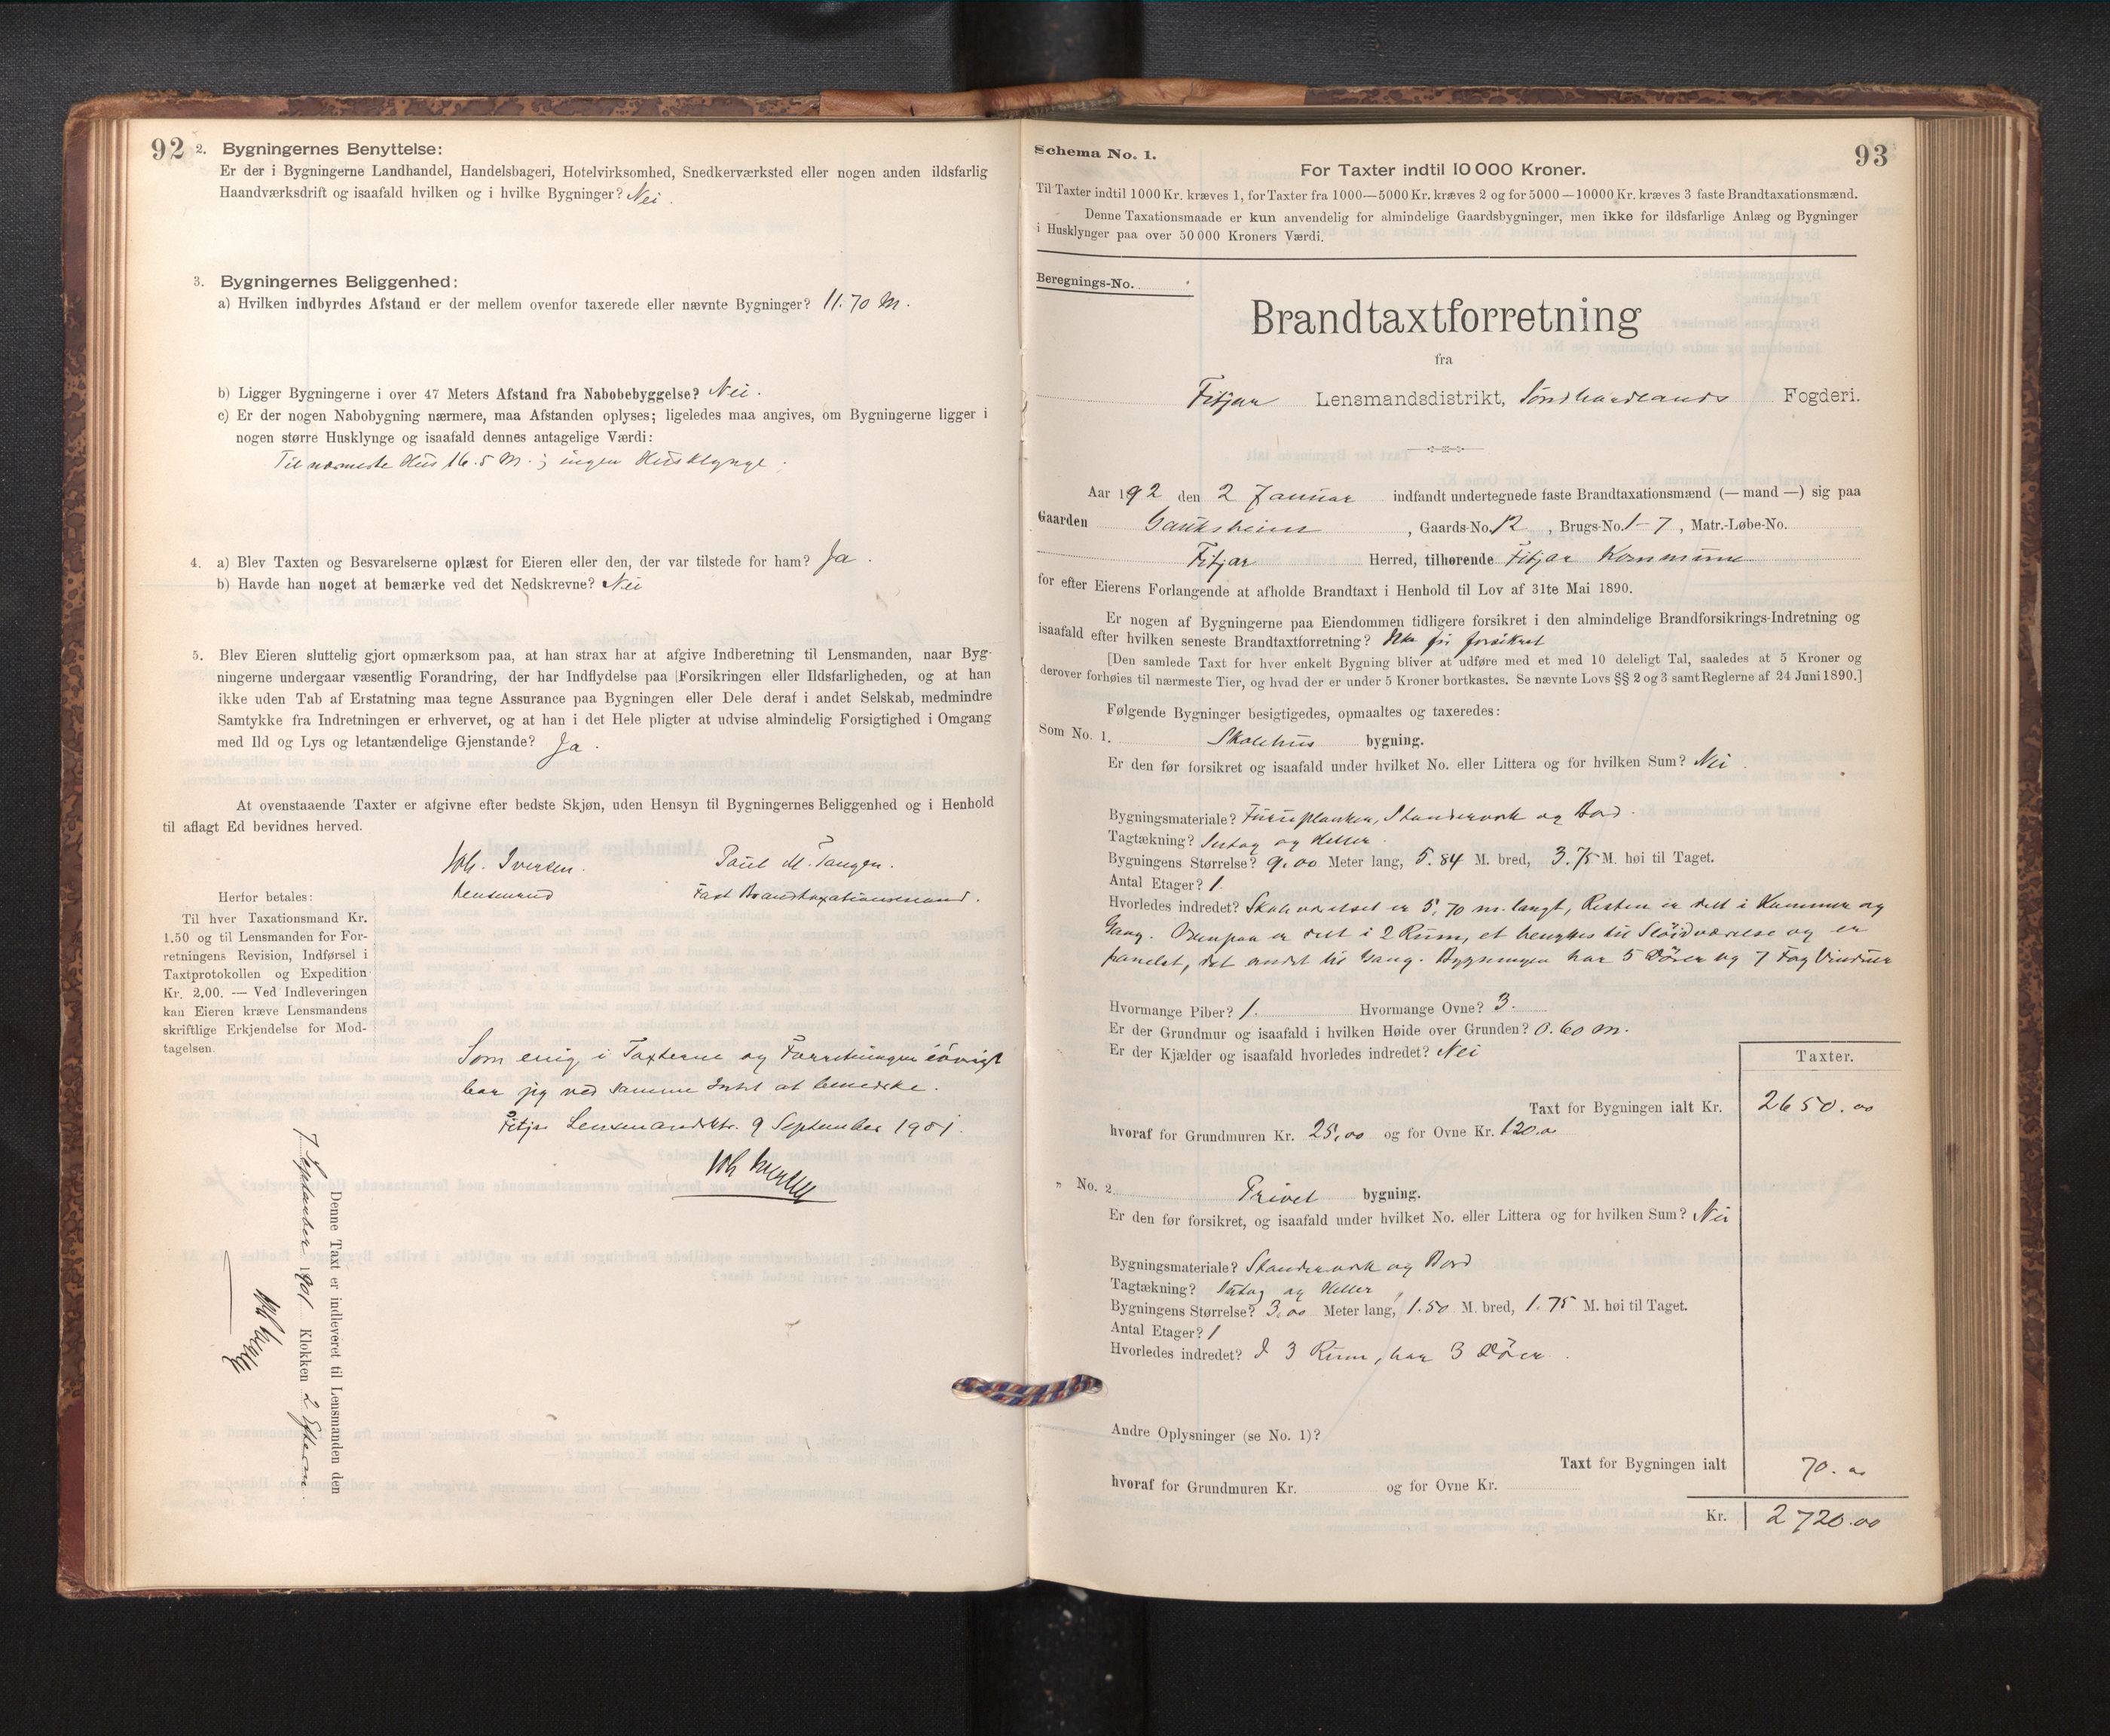 92
2. Bygningernes Benyttelse:
Er der i Bygningerne Landhandel, Handelsbageri, Hotelvirksomhed, Snedkerværksted eller nogen anden ildsfarlig
Haandværksdrift og isaafald hvilken og i hvilke Bygninger? Nei.
3. Bygningernes Beliggenhed:
a) Hvilken indbyrdes Afstand er der mellem ovenfor taxerede eller nævnte Bygninger? 11.70 M.
b) Ligger Bygningerne i over 47 Meters Afstand fra Nabobebyggelse? Nei.
c) Er der nogen Nabobygning nærmere, maa Afstanden oplyses; ligeledes maa angives, om Bygningerne ligger i
nogen større Husklynge og isaafald dennes antagelige Værdi:
Til nærmeste Hus 16.5 M.; ingen Husklynge.
4. a) Blev Taxten og Besvarelserne oplæst for Eieren eller den, der var tilstede for ham? Ja.
b) Havde han noget at bemærke ved det Nedskrevne? Nei
5. Blev Eieren sluttelig gjort opmærksom paa, at han strax har at afgive Indberetning til Lensmanden, naar Byg-
ningerne undergaar væsentlig Forandring, der har Indflydelse paa Forsikringen eller Ildsfarligheden, og at han
ikke uden Tab af Erstatning maa tegne Assurance paa Bygningen eller Dele deraf i andet Selskab, medmindre
Samtykke fra Indretningen er erhvervet, og at han i det Hele pligter at udvise almindelig Forsigtighed i Omgang
med Ild og Lys og letantændelige Gjenstande? Ja.
At ovenstaaende Taxter er afgivne efter bedste Skjøn, uden Hensyn til Bygningernes Beliggenhed og i Henhold
til aflagt Ed bevidnes herved.
Joh. Iversen. Paul M. Tangen.
Lensmand Fast Brandtaxationsmand.
Herfor betales:
Til hver Taxationsmand Kr.
1.50 og til Lensmanden for For-
retningens Revision, Indførsel i
Taxtprotokollen og Expedition
Kr. 2,00. — Ved Indleveringen
kan Eieren kræve Lensmandens
skriftlige Erkjendelse for Mod-
tagelsen.
Som enig i Taxterne og Forretningen iøvrigt
har jeg ved samme Intet at bemerke.
Fitjar Lensmandsktr. 9 September 1901.
Joh Iversen
Denne Taxt er indleveret til Lensmanden den
7 September 1901 Klokken 2 Efterm.
Joh Iversen
93
Schema No. 1.
For Taxter indtil 10 000 Kroner.
Til Taxter indtil 1000 Kr. kræves 1, for Taxter fra 1000—5000 Kr. kræves 2 og for 5000—10000 Kr. kræves 3 faste Brandtaxationsmænd.
Denne Taxationsmaade er kun anvendelig for almindelige Gaardsbygninger, men ikke for ildsfarlige Anlæg og Bygninger
i Husklynger paa over 50 000 Kroners Værdi.
Beregnings-No.
Brandtaxtforretning
fra
Fitjar Lensmandsdistrikt, Søndhordlands Fogderi.
Aar 192 den 2 Januar indfandt undertegnede faste Brandtaxationsmænd (— mand —) sig paa
Gaarden Gauksheim, Gaards-No. 12, Brugs-No. 1-7, Matr.-Løbe-No.
Fitjar Herred, tilhørende Fitjar Kommune
for efter Eierens Forlangende at afholde Brandtaxt i Henhold til Lov af 31te Mai 1890.
Er nogen af Bygningerne paa Eiendommen tidligere forsikret i den almindelige Brandforsikrings-Indretning og
isaafald efter hvilken seneste Brandtaxtforretning? Ikke før forsikret
[Den samlede Taxt for hver enkelt Bygning bliver at udføre med et med 10 deleligt Tal, saaledes at 5 Kroner og
derover forhøies til nærmeste Tier, og hvad der er under 5 Kroner bortkastes. Se nævnte Lovs §§ 2 og 3 samt Reglerne af 24 Juni 1890.]
Følgende Bygninger besigtigedes, opmaaltes og taxeredes:
Som No. 1. Skolehus bygning.
Er den før forsikret og isaafald under hvilket No. eller Littera og for hvilken Sum? Nei.
Bygningsmateriale? Furuplanker, Standerværk og Bord.
Tagtækning? Sutag og Heller.
Bygningens Størrelse? 9.00 Meter lang, 5.84 M. bred, 3.75 M. høi til Taget.
Antal Etager? 1
Hvorledes indredet? Skoleværelset er 5,70 m. langt, Resten er delt i Kammer og
Gang. Ovenpaa er delt i 2 Rum, et benyttes til Sløidværelse og er
panelet, det andet til Gang. Bygningen har 5 Döre og 7 Fag Vinduer
Hvormange Piber? 1. Hvormange Ovne? 3.
Er der Grundmur og isaafald i hvilken Høide over Grunden? 0.60 m.
Er der Kjælder og isaafald hvorledes indredet? Nei
Taxter.
Taxt for Bygningen ialt Kr. 2650.00
hvoraf for Grundmuren Kr. 25,00 og for Ovne Kr. 120.00
" No. 2 Privet bygning.
Er den før forsikret, og isaafald under hvilket No. eller Littera og for hvilken Sum? Nei
Bygningsmateriale? Standerværk og Bord
Tagtækning? Sutag og Heller,
Bygningens Størrelse? 3,00 Meter lang, 1.50 M. bred, 1.75 M. høi til Taget.
Antal Etager? 1
Hvorledes indredet? I 3 Rum, har 3 Döre.
Andre Oplysninger (se No. 1)?
Taxt for Bygningen ialt 70.00
hvoraf for Grundmuren Kr. og for Ovne Kr.
Kr. 2720.00